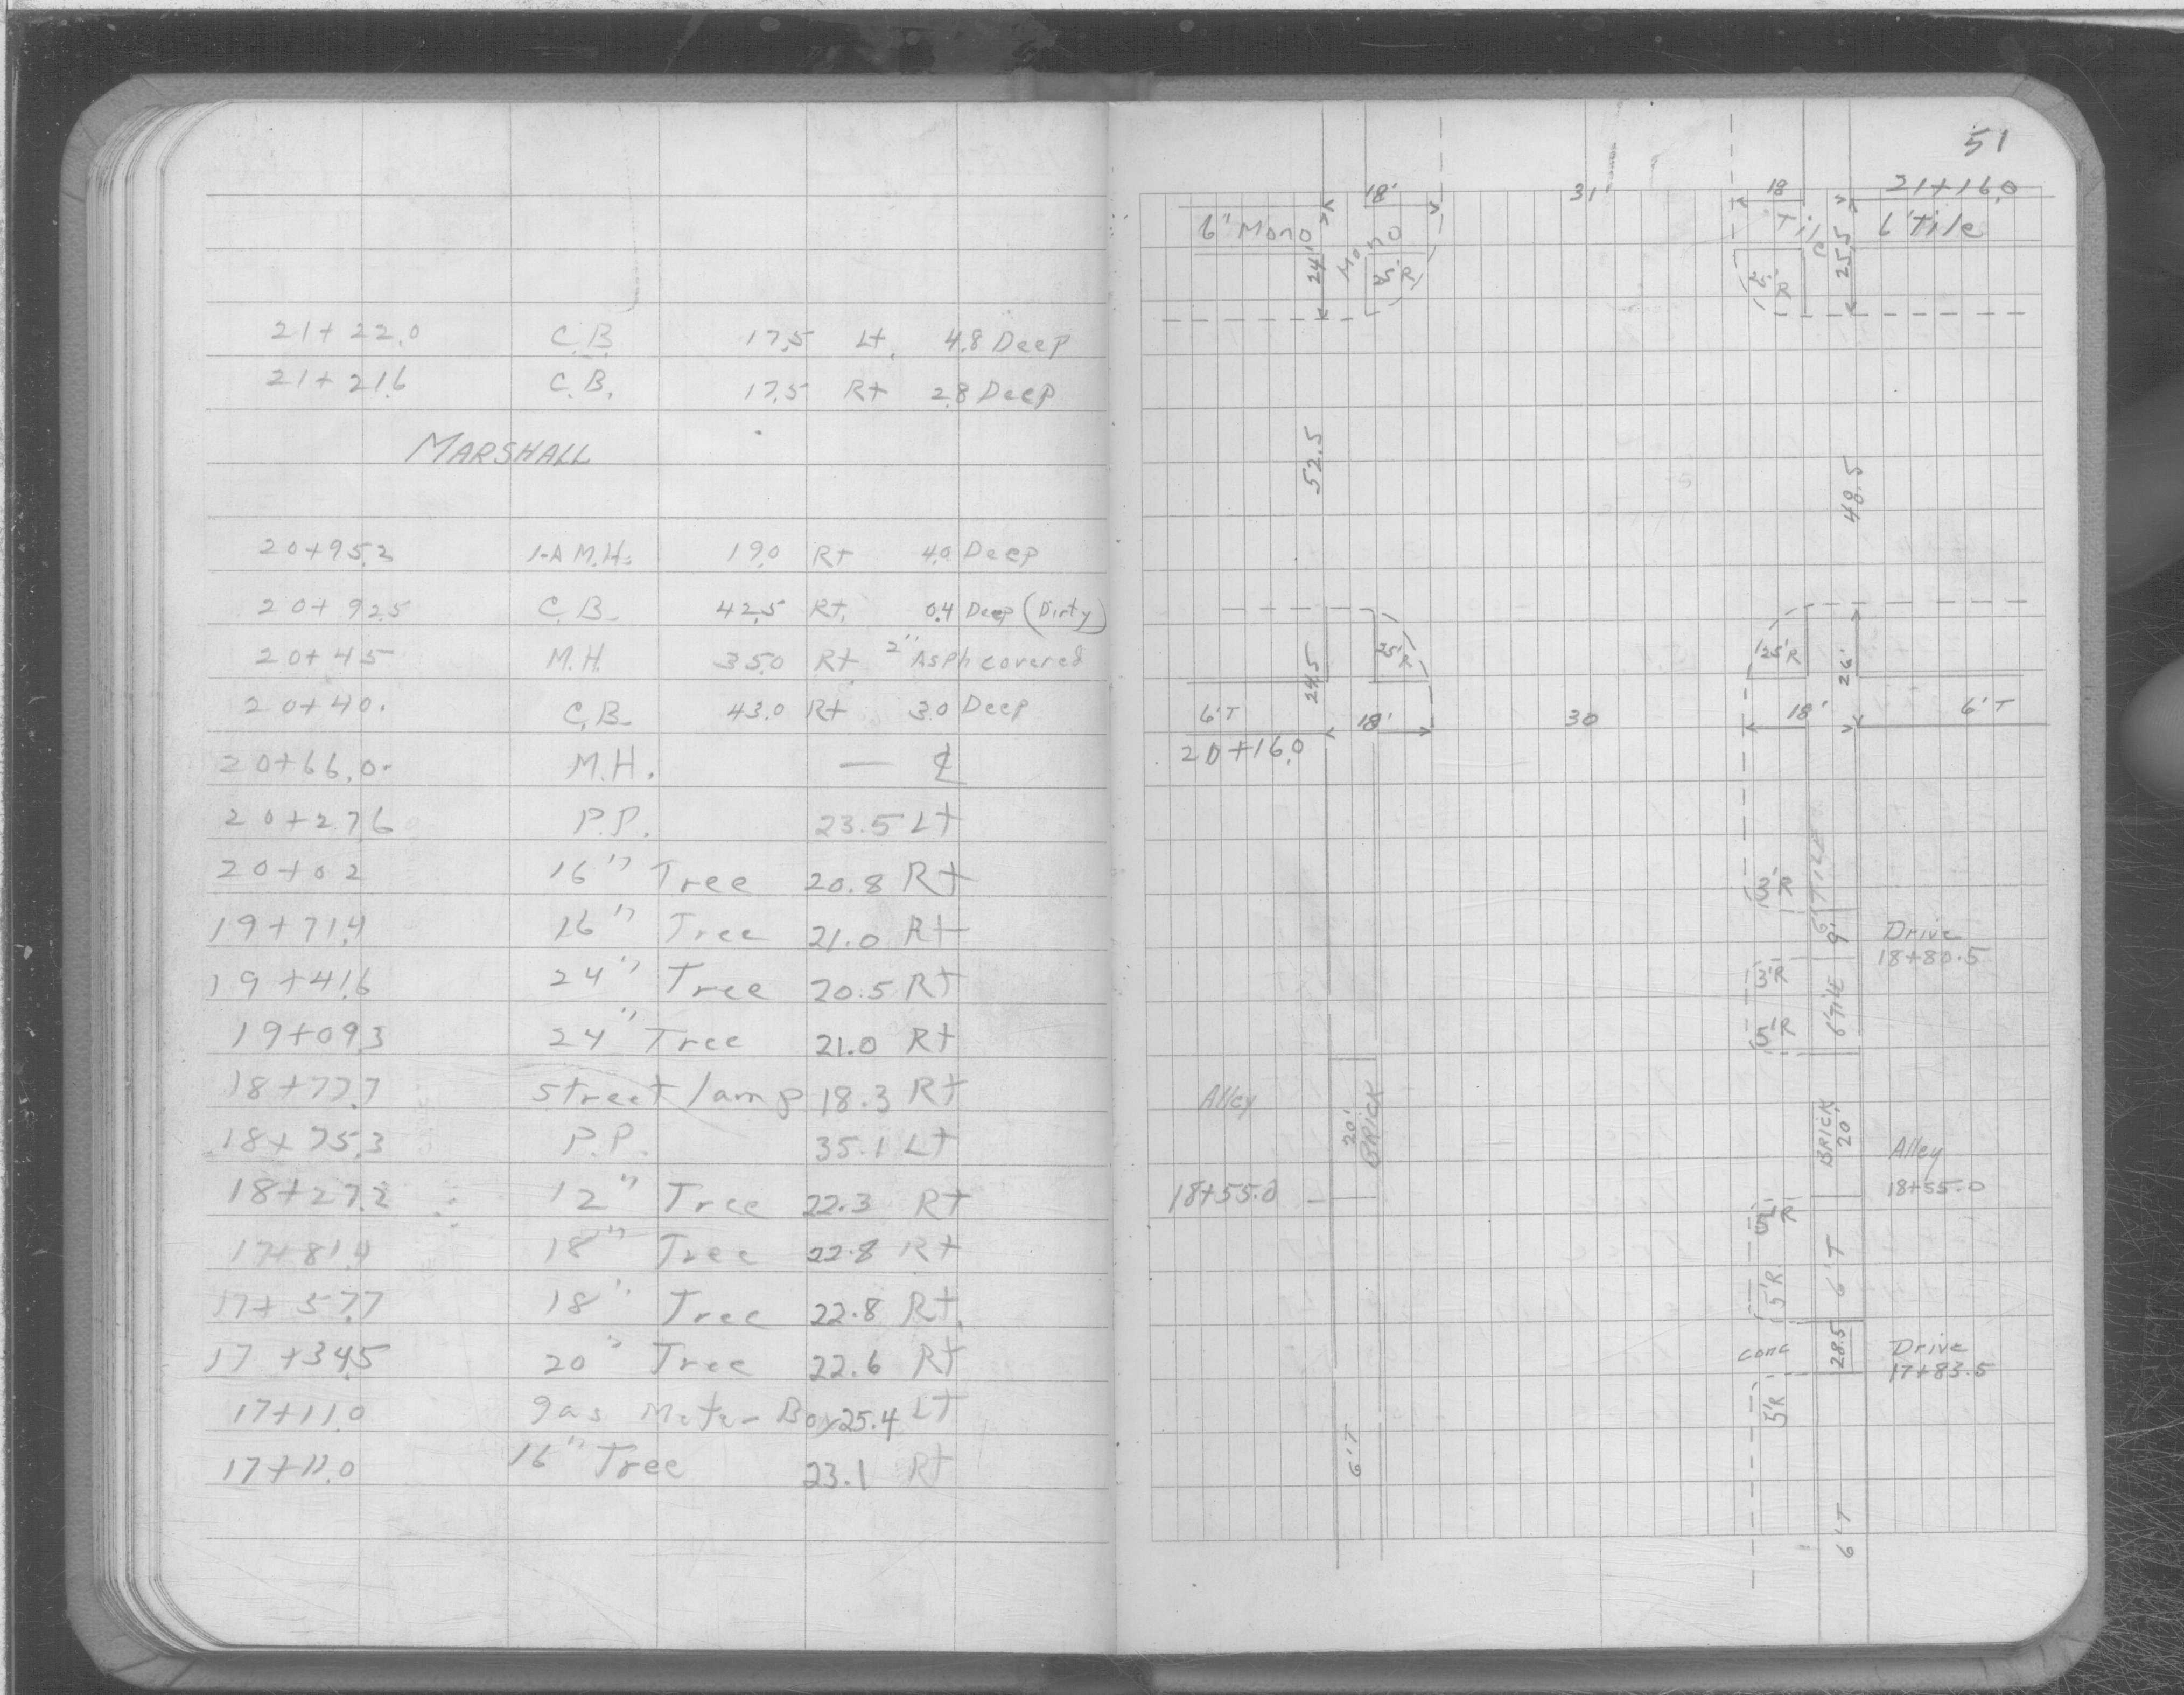 21+22.0 C.B. 17.5 Lt. 4.8 Deep
21+21.6 C.B. 17.5 Rt 2.8 Deep
MARSHALL
20+95.2 1-A M.H. 19.0 Rt 4.0 Deep
20+92.5 C.B. 42.5 Rt. 0.4 Deep (Dirty)
20+45 M.H. 35.0 Rt. 2" Asph covered
20+40. C.B. 43.0 Rt 3.0 Deep
20+66.0. M.H. — ℄
20+27.6 P.P. 23.5 Lt
20+02 16" Tree 20.8 Rt
19+71.4 16" Tree 21.0 Rt
19+41.6 24" Tree 20.5 Rt
19+09.3 24" Tree 21.0 Rt
18+77.7 street lamp 18.3 Rt
18+75.3 P.P. 35.1 Lt
18+27.2 12" Tree 22.3 Rt
17+81.4 18" Tree 22.8 Rt
17+57.7 18" Tree 22.8 Rt.
17+34.5 20" Tree 22.6 Rt
17+11.0 gas Meter Box 25.4 Lt
17+11.0 16" Tree 23.1 Rt
51
18' 31 18 21+16.0
6" Mono 24.0 Mono 25' R 25' R Tile 25.5 6' Tile
52.5 48.5
24.5 25' R 25' R 26'
6'T 18' 30 18' 6'T
20+16.0
6' TILE
3'R
9' Drive
18+80.5
3'R 6' TILE
5'R
Alley 20' BRICK BRICK 20' Alley
18+55.0 18+55.0
5'R
5'R 6'T
conc 28.5 Drive
17+83.5
5'R
6'T
6'T